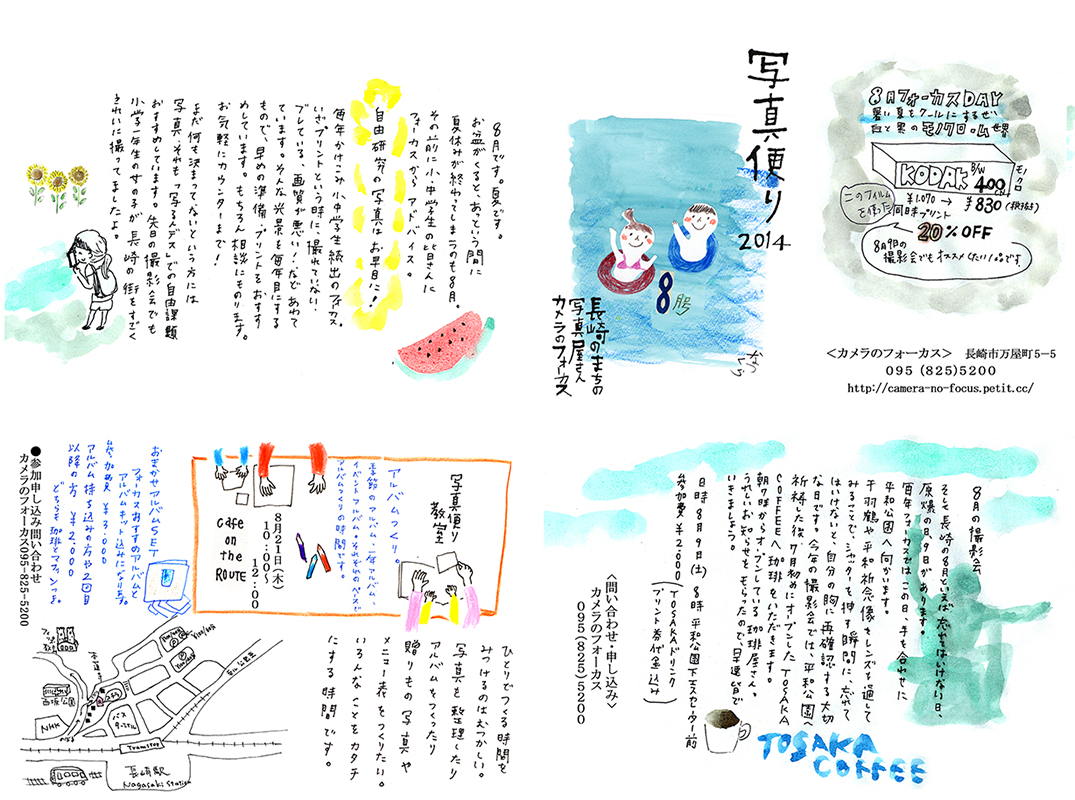 写真便り
2014
8月号
長崎のまちの
写真屋さん
カメラのフォーカス
8月フォーカスDAY
暑い夏をクールにするぜい
白と黒のモノクローム世界
KODAK B/W 400 モノクロ
このフィルム
を使った
¥1,070 →
同時プリント
¥830(税抜き)
20%OFF
8月9日の
撮影会でもオススメしたい1品です
<カメラのフォーカス> 長崎市万屋町5−5
095 (825)5200
http://camera-no-focus.petit.cc/
8月です。夏です。
お盆がくると、あっという間に
夏休みが終わってしまうのも8月。
その前に小・中学生の皆さんに
フォーカスからアドバイス。
自由研究の写真はお早目に!
毎年かけこみ小中学生続出のフォーカス。
いざプリントという時に、撮れていない・
ブレている・画質が悪い!・・などあわて
ています。そんな光景を毎年目にする
もので、早めの準備・プリントをおすす
めしています。もちろん相談にものります。
お気軽にカウンターまで!
まだ何も決まってないという方には
写真・それも「写ルンデス」での自由課題
おすすめしています。先日の撮影会でも
小学一年生の女の子が長崎の街をすごく
きれいに撮ってましたよ。
8月の撮影会
そして長崎の8月といえば忘れてはいけない日、
原爆の日、9日があります。
毎年フォーカスでは、この日、手を合わせに
平和公園へ向かいます。
千羽鶴や平和祈念像をレンズを通して
みることで、シャッターを押す瞬間に、忘れて
はいけないと、自分の胸に再確認する大切
な日です。今年の撮影会では、平和公園へ
祈祷した後、7月初めにオープンしたTOSAKA
COFFEEへ珈琲をいただきます。
朝7時からオープンしている珈琲屋さん。
うれしいお知らせをもらったので、早速皆で
いきましょう。
日時 8月9日(土) 8時 平和公園下エスカレーター前
参加費 ¥2,000
(TOSAKAドリンク
プリント券代金込み)
<問い合わせ・申し込み>
カメラのフォーカス
095(825)5200
TOSAKA
COFFEE
写真便り
教室
アルバムつくり。
季節のアルバム・一年アルバム・
イベントアルバム。それぞれのペースで
アルバムつくりの時間です。
8月21日(木)
10:00〜12:00
Cafe
on
the
ROUTE
おまかせアルバムSET
フォーカスおすすめのアルバムと
アルバムキット込みになります。
参加費 ¥3,000
アルバム持ち込みの方や2回目
以降の方 ¥2,000
どちらも珈琲とマフィンつき。
●参加申し込み問い合わせ
カメラのフォーカス095-825-5200
ひとりでつくる時間を
みつけるのはむつかしい。
写真を整理したり
アルバムをつくったり
贈りもの写真や
メニュー表をつくりたい。
いろんなことをカタチ
にする時間です。
西坂公園
NHK
バス
ターミナル
Tramstop
長崎駅
Nagasaki Station